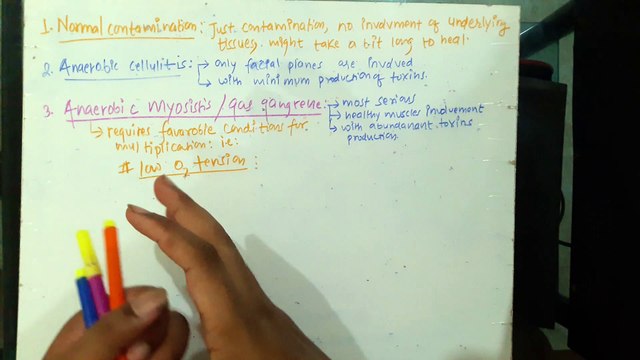 1. Normal contamination: Just contamination, no involvment of underlying
tissues. might take a bit long to heal.
2. Anaerobic cellulitis: → only facial planes are involved
→ with minimum production of toxins.
3. Anaerobic Myosistis/gas gangrene: → most serious
→ healthy muscles involvement
→ with abundanant toxins
production
→ requires favorable conditions for
multiplication: ie:
# low O2 tension :